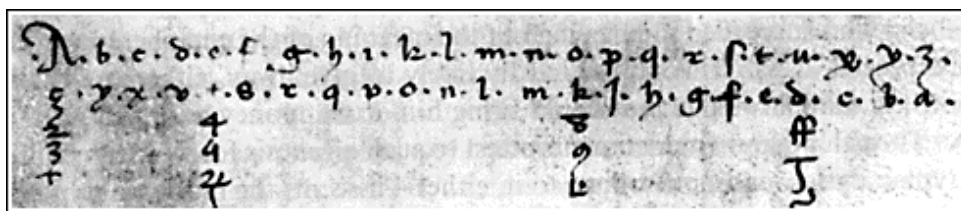 .A.b.c.d.e.f.g.h.ı.k.l.m.n.o.p.q.r.ſ.t.u.x.y.z.
z.y.x.v.t.s.r.q.p.o.n.l.m.k.j.h.g.f.e.d.c.b.a.
2 4 8 ff
3 9
+